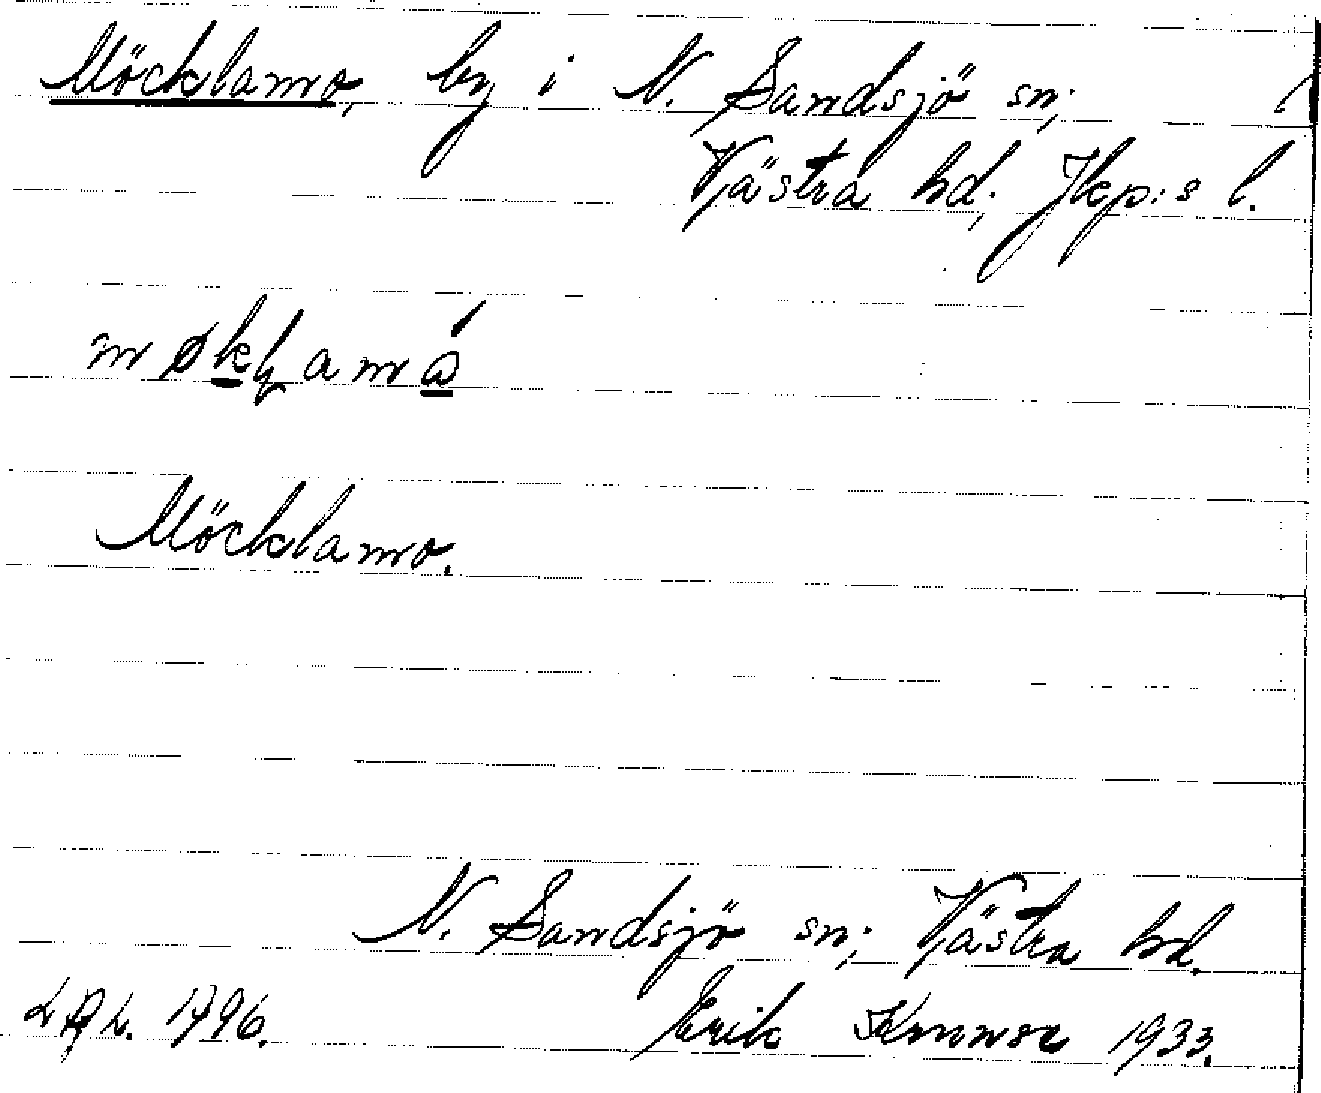 Möcklamo, by i N. Sandsjö sn;
Västra hd; Jkp:s l.
møkḷamó
Möcklamo.
N. Sandsjö sn; Västra hd.
1796. Erik 1933.